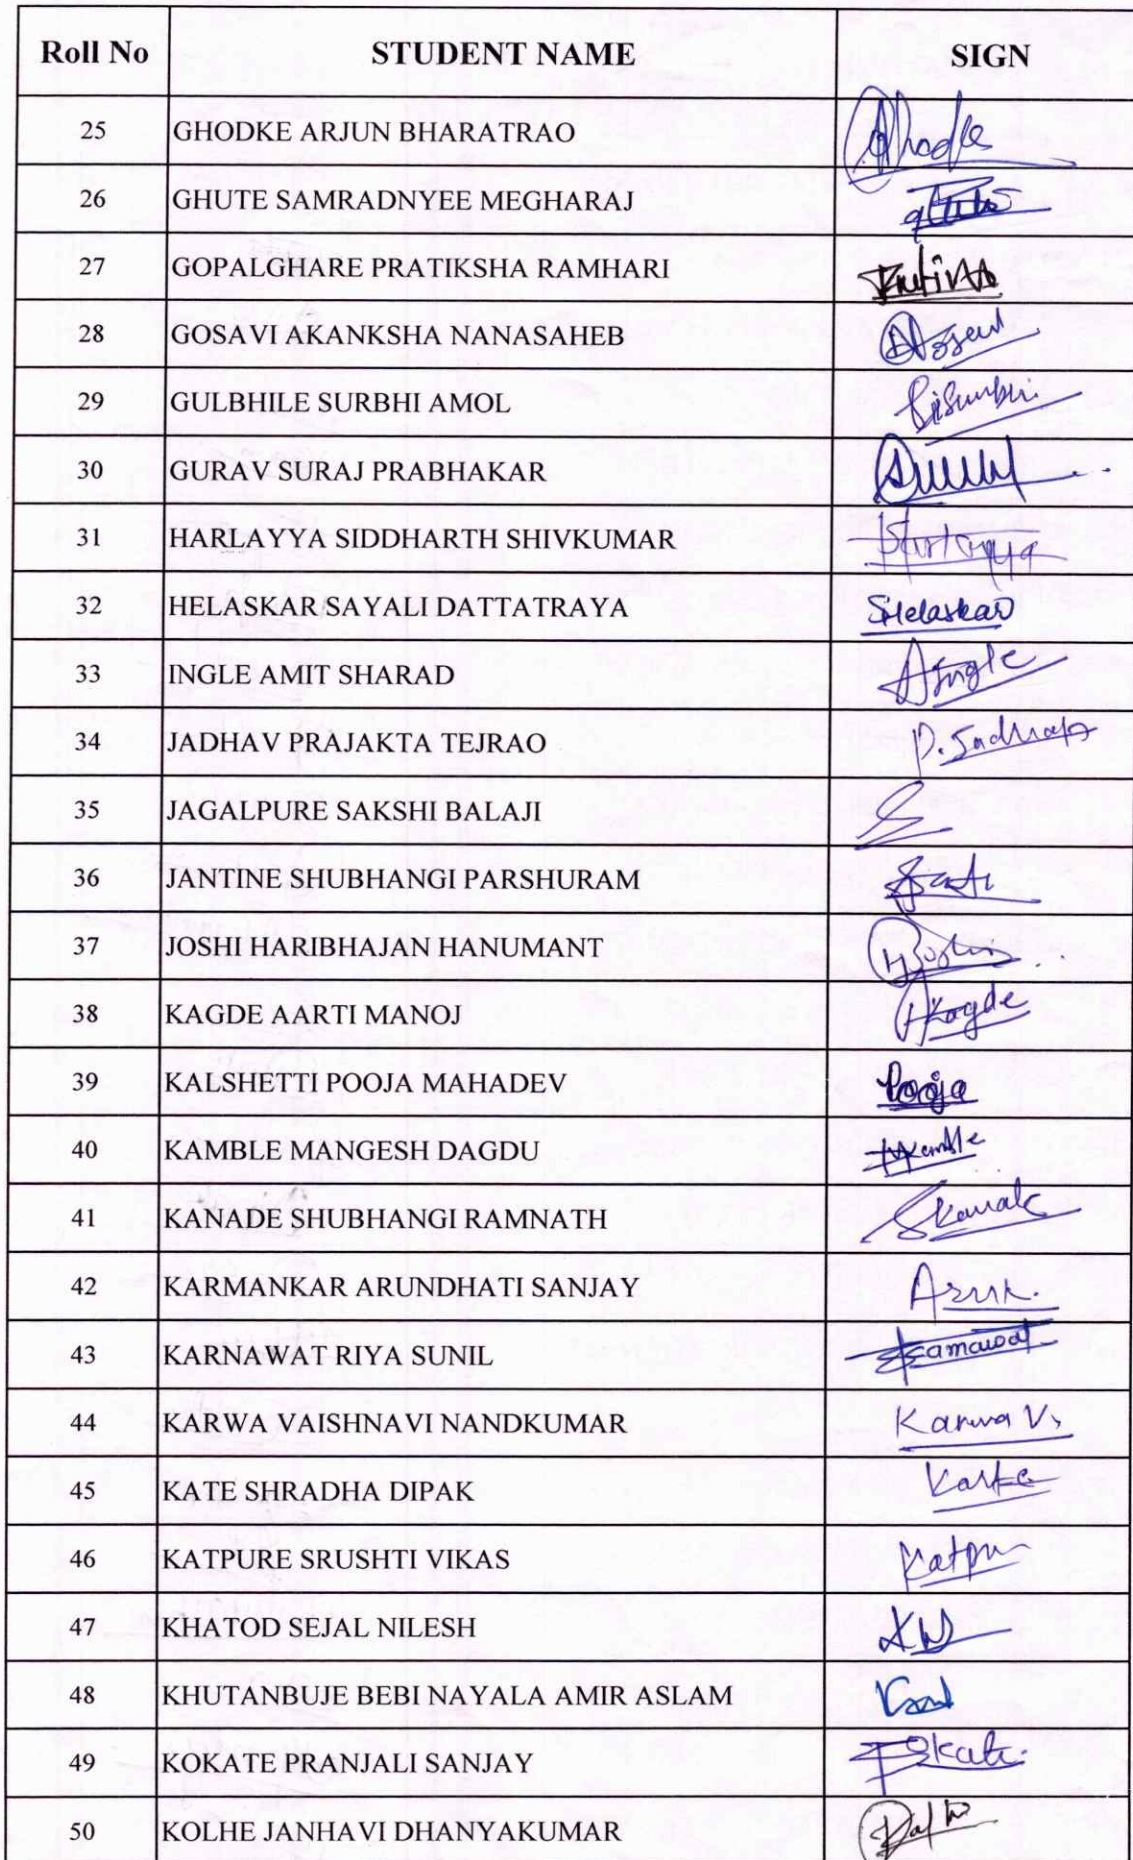 Roll No STUDENT NAME SIGN
25 GHODKE ARJUN BHARATRAO Ghodke
26 GHUTE SAMRADNYEE MEGHARAJ
27 GOPALGHARE PRATIKSHA RAMHARI
28 GOSAVI AKANKSHA NANASAHEB
29 GULBHILE SURBHI AMOL
30 GURAV SURAJ PRABHAKAR
31 HARLAYYA SIDDHARTH SHIVKUMAR
32 HELASKAR SAYALI DATTATRAYA SHelaskar
33 INGLE AMIT SHARAD AIngle
34 JADHAV PRAJAKTA TEJRAO P. Jadhav
35 JAGALPURE SAKSHI BALAJI
36 JANTINE SHUBHANGI PARSHURAM
37 JOSHI HARIBHAJAN HANUMANT
38 KAGDE AARTI MANOJ AKagde
39 KALSHETTI POOJA MAHADEV Pooja
40 KAMBLE MANGESH DAGDU MKamble
41 KANADE SHUBHANGI RAMNATH
42 KARMANKAR ARUNDHATI SANJAY
43 KARNAWAT RIYA SUNIL
44 KARWA VAISHNAVI NANDKUMAR Karwa V.
45 KATE SHRADHA DIPAK
46 KATPURE SRUSHTI VIKAS
47 KHATOD SEJAL NILESH
48 KHUTANBUJE BEBI NAYALA AMIR ASLAM
49 KOKATE PRANJALI SANJAY
50 KOLHE JANHAVI DHANYAKUMAR